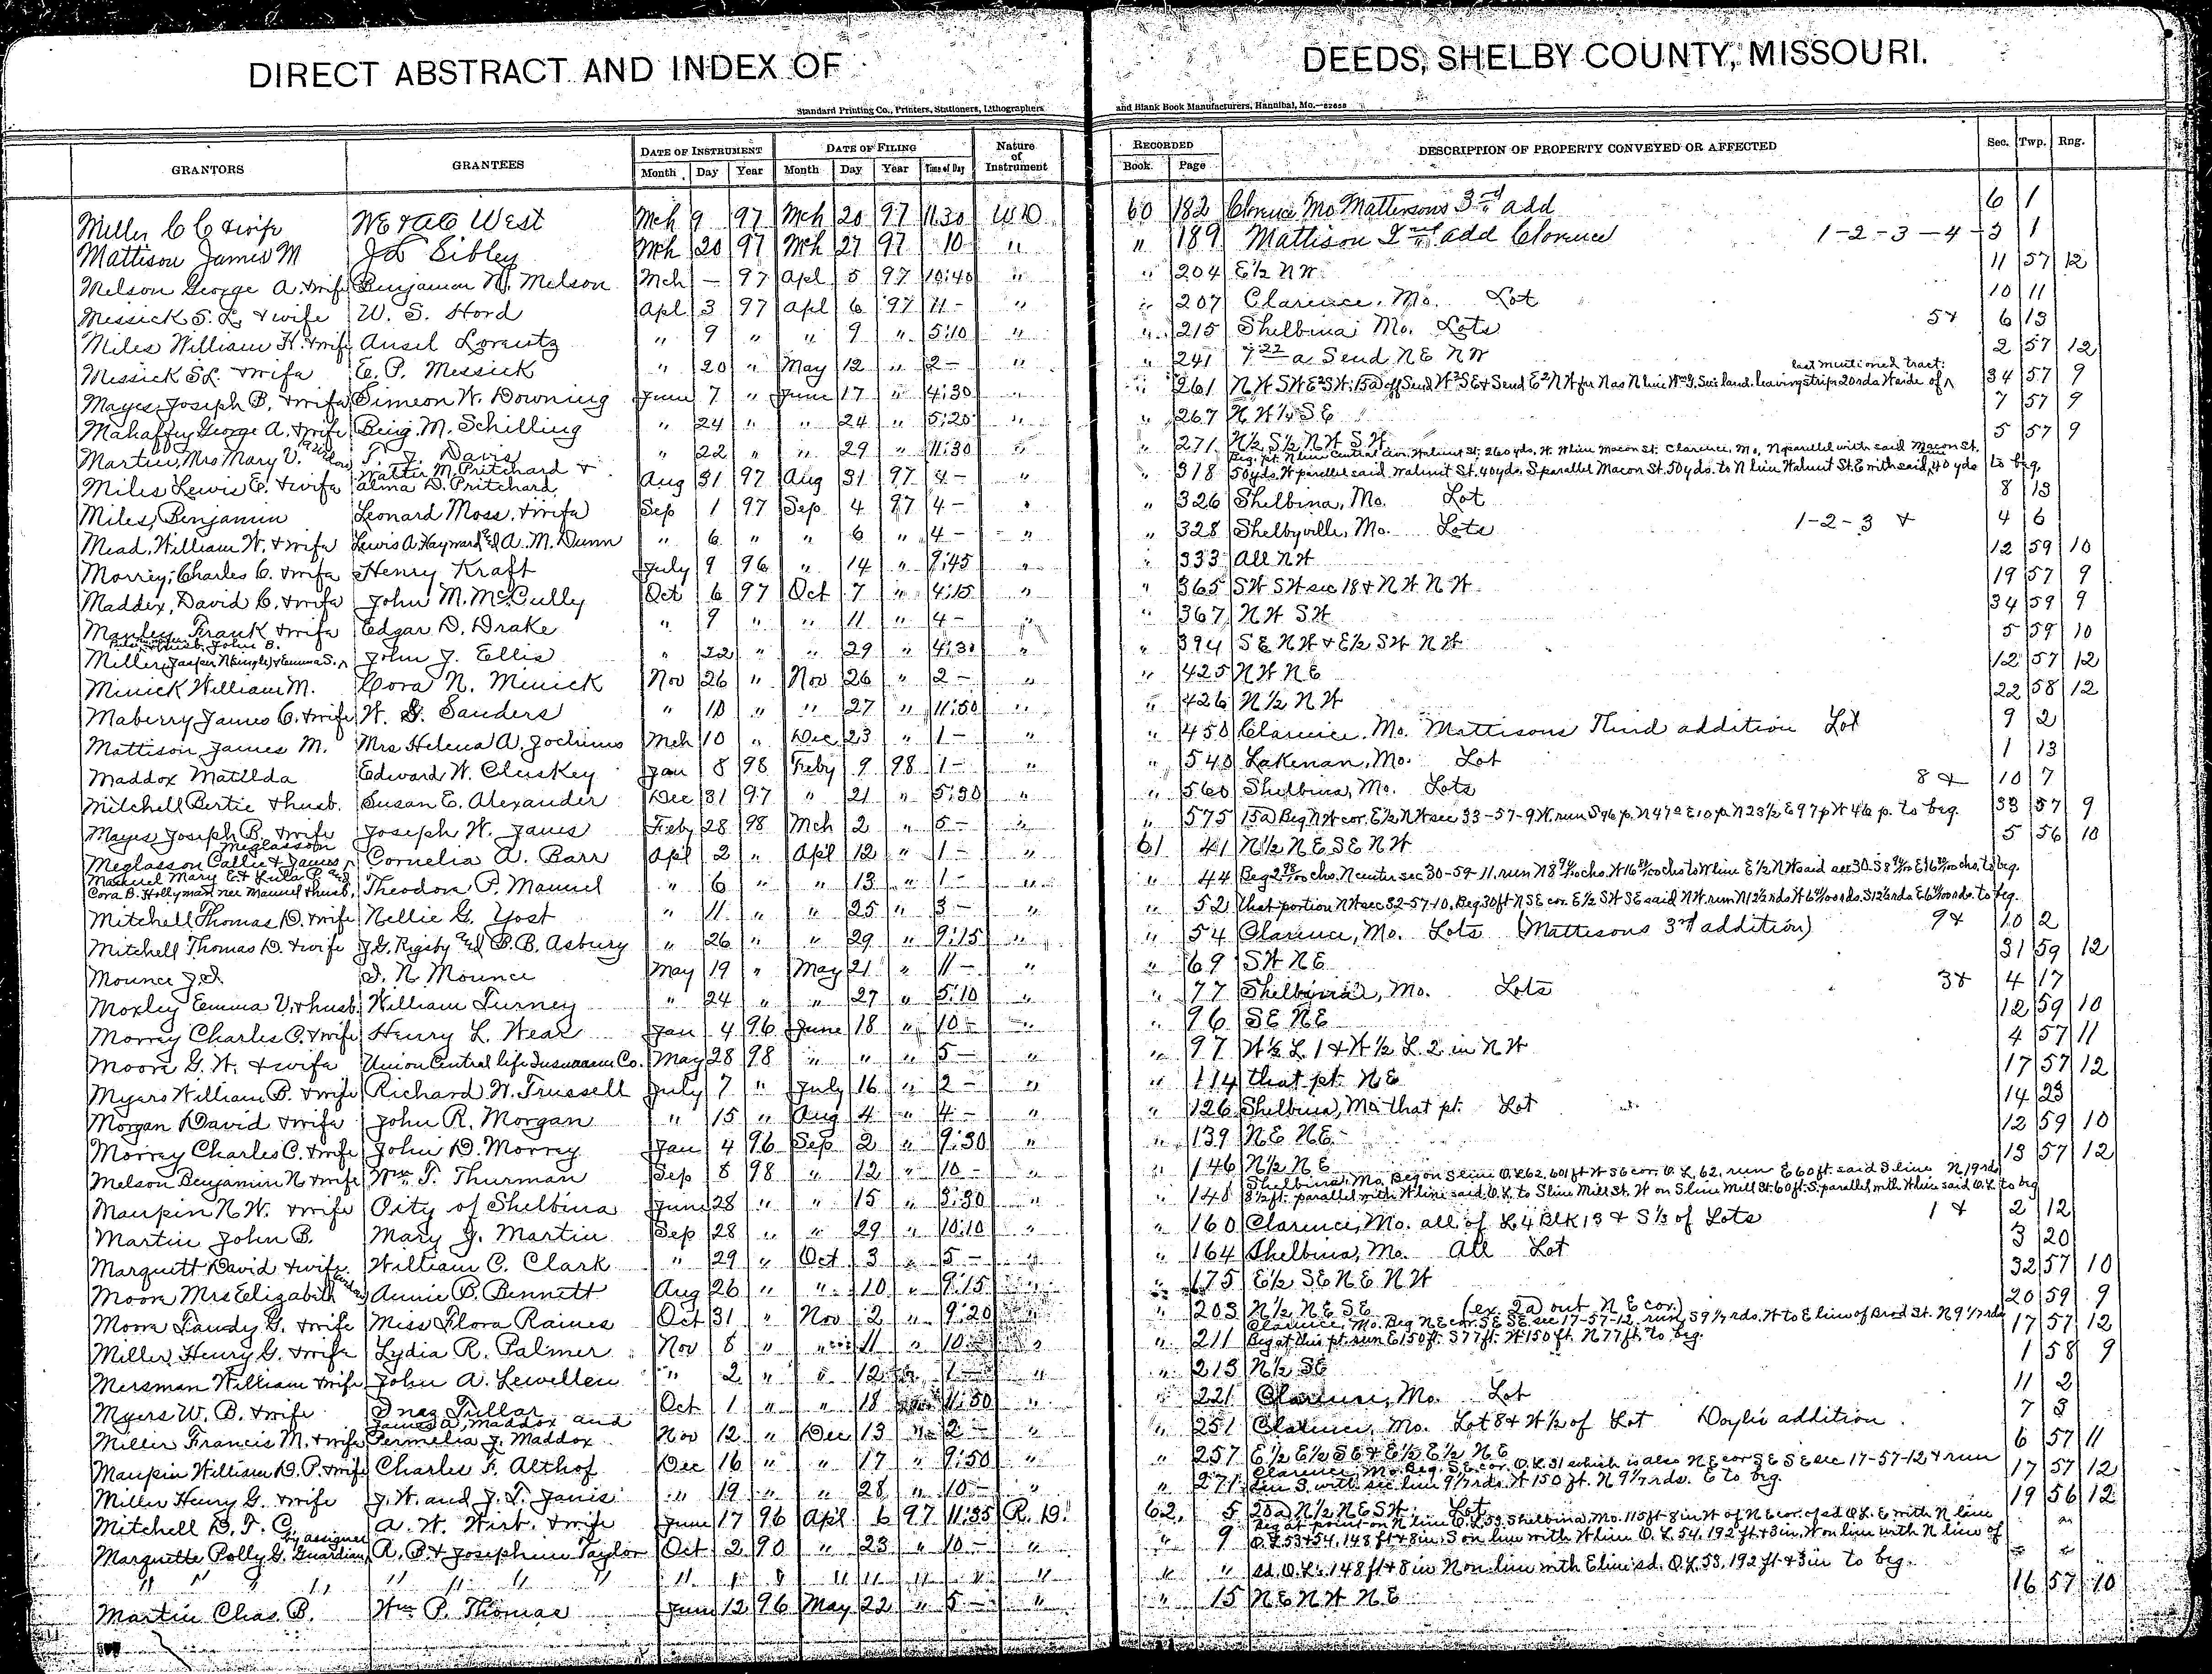 DIRECT ABSTRACT AND INDEX OF DEEDS, SHELBY COUNTY, MISSOURI.
Standard Printing Co., Printers, Stationers, Lithographers and Blank Book Manufacturers, Hannibal, Mo.
GRANTORS GRANTEES DATE OF INSTRUMENT DATE OF FILING Nature of Instrument RECORDED DESCRIPTION OF PROPERTY CONVEYED OR AFFECTED Sec. Twp. Rng.
Month Day Year Month Day Year Time of Day Book Page
Miller C C & wife West Mch 9 97 Mch 20 97 11.30 W D 60 182 Clarence Mo Mattersons 3rd add 6 1
Mattison James M Sibley Mch 20 97 Mch 27 97 10 " " 189 Mattison 2nd add Clarence 1-2-3-4- 3 1
Melson George A. & wife Benjamin N. Melson Mch — 97 Apl 5 97 10:40 " " 204 E½ NW 11 57 12
Messick S. L. & wife W. S. Hord Apl 3 97 Apl 6 97 11- " " 207 Clarence, Mo. Lot 10 11
Miles William H. & wife Ansel Lorentz " 9 " " 9 " 5:10 " " 215 Shelbina Mo. Lots 5 & 6 13
Messick S L. & wife E. P. Messick " 20 " May 12 " 2- " " 241 7 22 a S end NE NW 2 57 12
Mayes Joseph B. & wife Simeon W. Downing June 7 " June 17 " 4:30 " " 261 leaving strip 20 rds W side of last mentioned tract. 34 57 9
Mahaffey George A. & wife Benj. M. Schilling " 24 " " 24 " 5:20 " " 267 N W ¼ S E 7 57 9
Martin, Mrs Mary V. (Widow) T. J. Davis " 22 " " 29 " 11:30 " " 271 N½ S½ NW SW 5 57 9
Miles Lewis E. & wife Walter M. Pritchard & Alma D. Pritchard Aug 31 97 Aug 31 97 4- " " 318 Beg. pt. N line Central Ave. Walnut St. 260 yds. W. W line Macon St. Clarence, Mo., N parallel with said Macon St. 50 yds. W parallel said Walnut St. 40 yds. S parallel Macon St. 50 yds. to N line Walnut St. E with said 40 yds to beg.
Miles, Benjamin Leonard Moss & wife Sep 1 97 Sep 4 97 4- " " 326 Shelbina, Mo. Lot 8 13
Mead, William W. & wife Lewis A. Hayward and A. M. Dunn " 6 " " 6 " 4- " " 328 Shelbyville, Mo. Lots 1-2-3 & 4 6
Morrey, Charles C. & wife Henry Kraft July 9 96 " 14 " 9:45 " " 333 All NW 12 59 10
Maddex, David C. & wife John M. McCully Oct 6 97 Oct 7 " 4:15 " " 365 SW SW sec 18 & NW NW 19 57 9
Manley Frank & wife Edgar D. Drake " 9 " " 11 " 4- " " 367 NW SW 34 59 9
Miller, Jasper N (single) & Emma S. & husb. John B. John J. Ellis " 22 " " 29 " 4:30 " " 394 SE NW & E½ SW NW 5 59 10
Minick William M. Cora N. Minick Nov 26 " Nov 26 " 2- " " 425 NW NE 12 57 12
Maberry James C. & wife W. G. Sanders " 10 " " 27 " 11:50 " " 426 N½ NW 22 58 12
Mattison James M. Mrs Helena A. Jochims Mch 10 " Dec 23 " 1- " " 450 Clarence, Mo. Mattisons Third addition Lot 9 2
Maddox Matilda Edward W. Cluskey Jan 8 98 Feby 9 98 1- " " 540 Lakenan, Mo. Lot 1 13
Mitchell Bertie & husb. Susan E. Alexander Dec 31 97 " 21 " 5:30 " " 560 Shelbina, Mo. Lots 8 & 10 7
Mayes Joseph B. & wife Joseph W. Janes Feby 28 98 Mch 2 " 5- " " 575 15a) Beg NW cor. E½ NW sec 33-57-9 W. run S 96 p. N 47° E 10 p. N 23½ E 97 p W 46 p. to beg. 33 57 9
Meglasson Callie & James Meglasson Cornelia A. Barr Apl 2 " Apl 12 " 1- " 61 41 N½ NE SE NW 5 56 10
Manuel Mary E. & Lula P. and Cora B. Hollyman nee Manuel & husb. Theodore P. Manuel " 6 " " 13 " 1- " " 44 Beg chs. N center sec 30-59-11, run N to W line E½ NW said sec 30 to beg.
Mitchell Thomas D. & wife Nellie G. Yost " 11 " " 25 " 3- " " 52 that portion NW sec 32-57-10. Beg 30 ft N SE cor. E½ SW SE said NW. run N 12½ rds W rds. S 12½ rds E rds. to beg.
Mitchell Thomas D. & wife J. G. Rigsby and B. B. Asbury " 26 " " 29 " 9:15 " " 54 Clarence, Mo. Lots (Mattisons 3rd addition) 9 & 10 2
Mounce J. I. N Mounce May 19 " May 21 " 11- " " 69 SW NE 31 59 12
Moxley Emma V. & husb. William Turney " 24 " " 27 " 5:10 " " 77 Shelbina, Mo. Lots 3 & 4 17
Morrey Charles C. & wife Henry L. Wear Jan 4 96 June 18 " 10- " " 96 SE NE 12 59 10
Moore G. W. & wife Union Central life Insurance Co. May 28 98 " " " 5- " " 97 W½ L 1 & W½ L. 2 in NW 4 57 11
Myers William B. & wife Richard W. Trussell July 7 " July 16 " 2- " " 114 that pt. NE 17 57 12
Morgan David & wife John R. Morgan " 15 " Aug 4 " 4- " " 126 Shelbina, Mo that pt. Lot 14 23
Morrey Charles C. & wife John D. Morrey Jan 4 96 Sep 2 " 9:30 " " 139 NE NE 12 59 10
Melson Benjamin N & wife Wm. T. Thurman Sep 8 98 " 12 " 10- " " 146 N½ NE 13 57 12
Maupin N W. & wife City of Shelbina June 28 " " 15 " 3:30 " " 148 Shelbina, Mo. Beg on S line O. L. 62, 601 ft W SE cor. O. L. 62, run E 60 ft. said S line N 19 rds 8½ ft. parallel with W line said O. L. to S line Mill St. W on S line Mill St. 60 ft. S. parallel with W line said O. L. to beg
Martin John B. Mary J. Martin Sep 28 " " 29 " 10:10 " " 160 Clarence, Mo. all of L 4 Blk 13 & S⅓ of Lots 1 & 2 12
Marquett David & wife William C. Clark " 29 " Oct 3 " 5- " " 164 Shelbina, Mo. All Lot 3 20
Moore Mrs Elizabeth Annie B. Bennett Aug 26 " " 10 " 9:15 " " 175 E½ SE NE NW 32 57 10
Moore Tandy G. & wife Miss Flora Raines Oct 31 " Nov 2 " 9:20 " " 203 N½ NE SE (ex. 2a) out NE cor) 20 59 9
Miller Henry G. & wife Lydia R. Palmer Nov 8 " " 11 " 10- " " 211 Clarence, Mo. Beg NE cor. SE SE. sec 17-57-12, run S 9⅓ rds. W to E line of Brod St. N 9⅓ rds Beg at this pt. run E 150 ft. S 77 ft. W 150 ft. N 77 ft. to beg. 17 57 12
Mersman William & wife John A. Lewellen " 2 " " 12 " 1- " " 213 N½ SE 1 58 9
Myers W. B. & wife Inez Tullar Oct 1 " " 18 " 11:50 " " 221 Clarence, Mo. Lot 11 2
Miller Francis M. & wife James A. Maddox and Permelia J. Maddox Nov 12 " Dec 13 " 2- " " 251 Clarence, Mo. Lot 8 & W½ of Lot Doyles addition 7 3
Maupin William D. P. & wife Charles F. Althof Dec 16 " " 17 " 9:50 " " 257 E½ E½ SE & E½ E½ NE 6 57 11
Miller Henry G. & wife J. W. and J. T. Janis " 19 " " 28 " 10- " " 271 Clarence, Mo. Beg. SE cor. O. L. 31 which is also NE cor SE SE sec 17-57-12 & run S. with sec line 9⅓ rds. W 150 ft. N 9⅓ rds. E to beg. 17 57 12
Mitchell D. T. C. A. W. Wirt & wife June 17 96 Apl 6 97 11:35 R. D. 62 5 20a) N½ NE SW 19 56 12
Marquette Polly G. Guardian by assignee A. B & Josephine Taylor Oct 2 90 " 23 " 10- " " 9 Beg at point on N line O. L. 53 Shelbina, Mo. 115 ft 8 in W of NE cor. of sd O. L. E with N line O. L 53 & 54, 148 ft & 8 in, S on line with W line O. L. 54, 192 ft & 3 in, W on line with N line of
" " " " " " " " " " " " " " " " " sd. O. L's. 148 ft & 8 in N on line with E line sd. O. L. 53, 192 ft & 3 in to beg.
Martin Chas B. Wm P. Thomas June 12 96 May 22 " 5- " " 15 NE NW NE 16 57 10